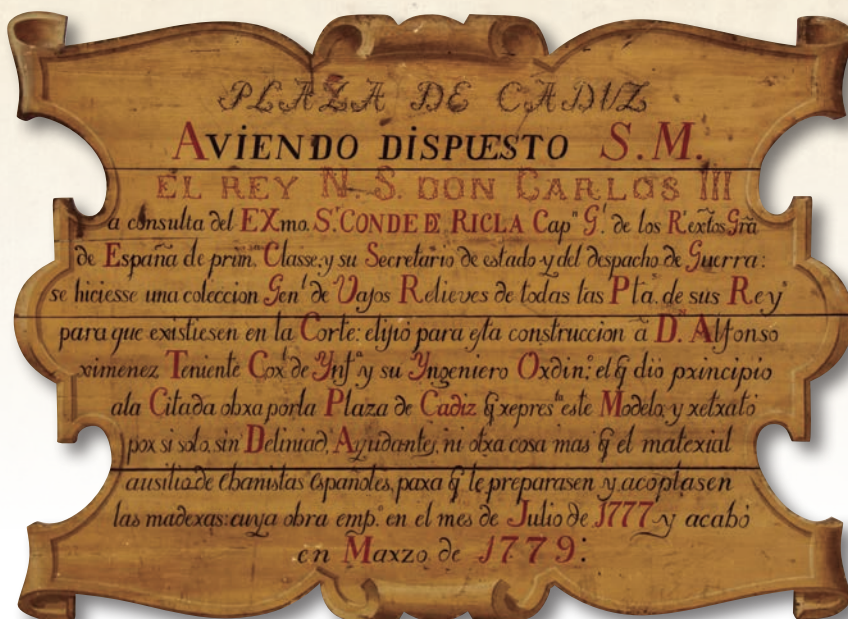 PLAZA DE CADIZ
AVIENDO DISPUESTO S.M.
EL REY N. S. DON CARLOS III
a consulta del EXmo. Sr. CONDE DE RICLA Capn. Gl. de los Rs. extos Grã
de España de prim.ª Classe, y su Secretario de estado y del despacho de Guerra:
se hiciesse una coleccion Genl. de Vajos Relieves de todas las Pta.s de sus Reyº
para que existiesen en la Corte: elijio para esta construccion ã D.n Alfonso
ximenez Teniente Coxl. de Ynfª y su Yngeniero Oxdin.º: el q̃ dio pxincipio
ala Citada obxa porla Plaza de Cadiz q̃ xepresta. este Modelo, y xetxato
pox si solo, sin Deliniadr. Ayudante, ni otxa cosa mas q̃ el matexial
ausilio de ebanistas españoles, paxa q̃ le preparasen y acoptasen
las madexas: cuya obra emp.º en el mes de Julio de 1777 y acabó
en Maxzo de 1779: